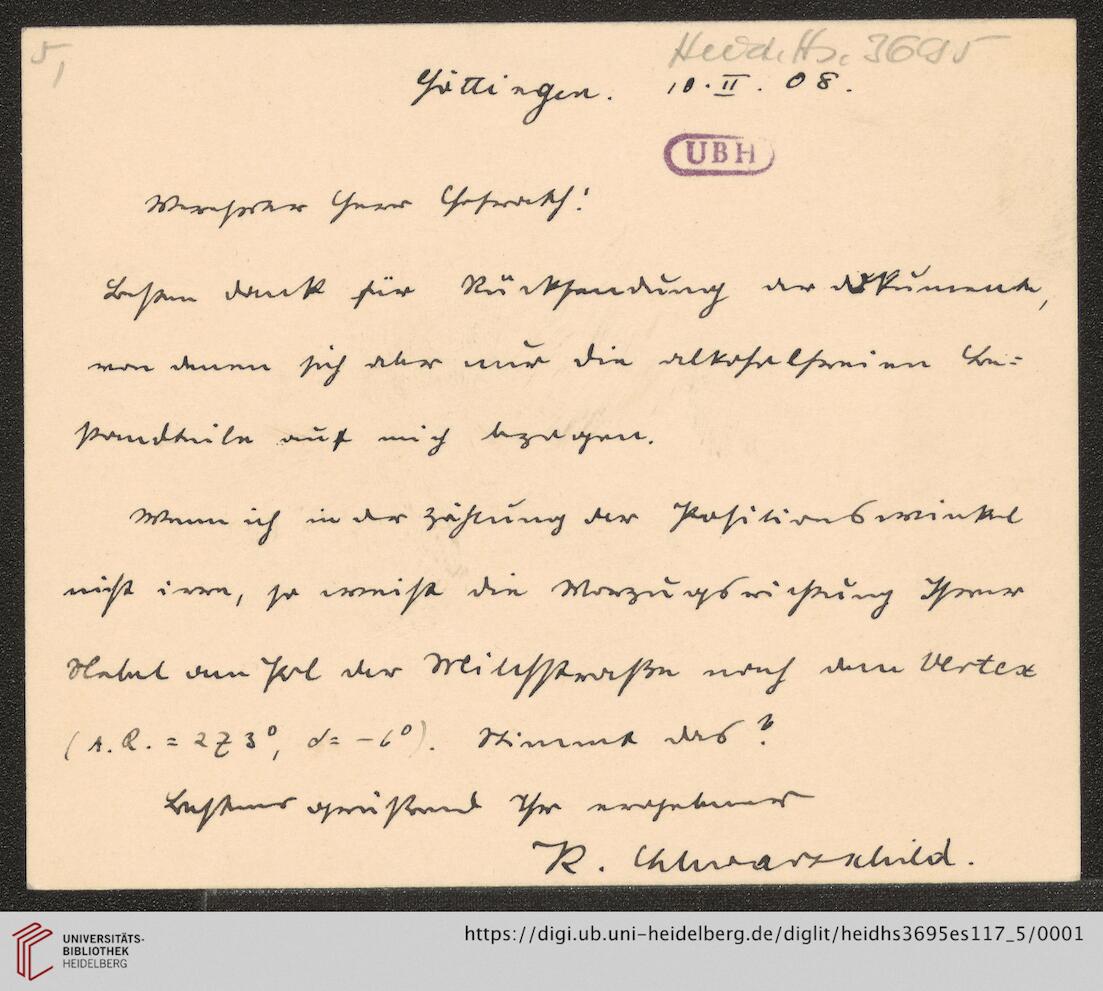 5,
Heid. Hs. 3695
Göttingen. 10. II. 08.
UBH
Verehrter Herr Hofrath!
Besten Dank für Rücksendung der Dokumente,
von denen sich aber nur die alkoholfreien Be=
standteile auf mich bezogen.
Wenn ich in der Zählung der Positionswinkel
nicht irre, so weist die Vorzugsrichtung Ihrer
Nebel am Pol der Milchstraße nach dem Vertex
(A.R. = 273°, d = -6°). Stimmt das?
Bestens grüßend Ihr ergebener
K. Schwarzschild.
UNIVERSITÄTS-
BIBLIOTHEK
HEIDELBERG
https://digi.ub.uni-heidelberg.de/diglit/heidhs3695es117_5/0001